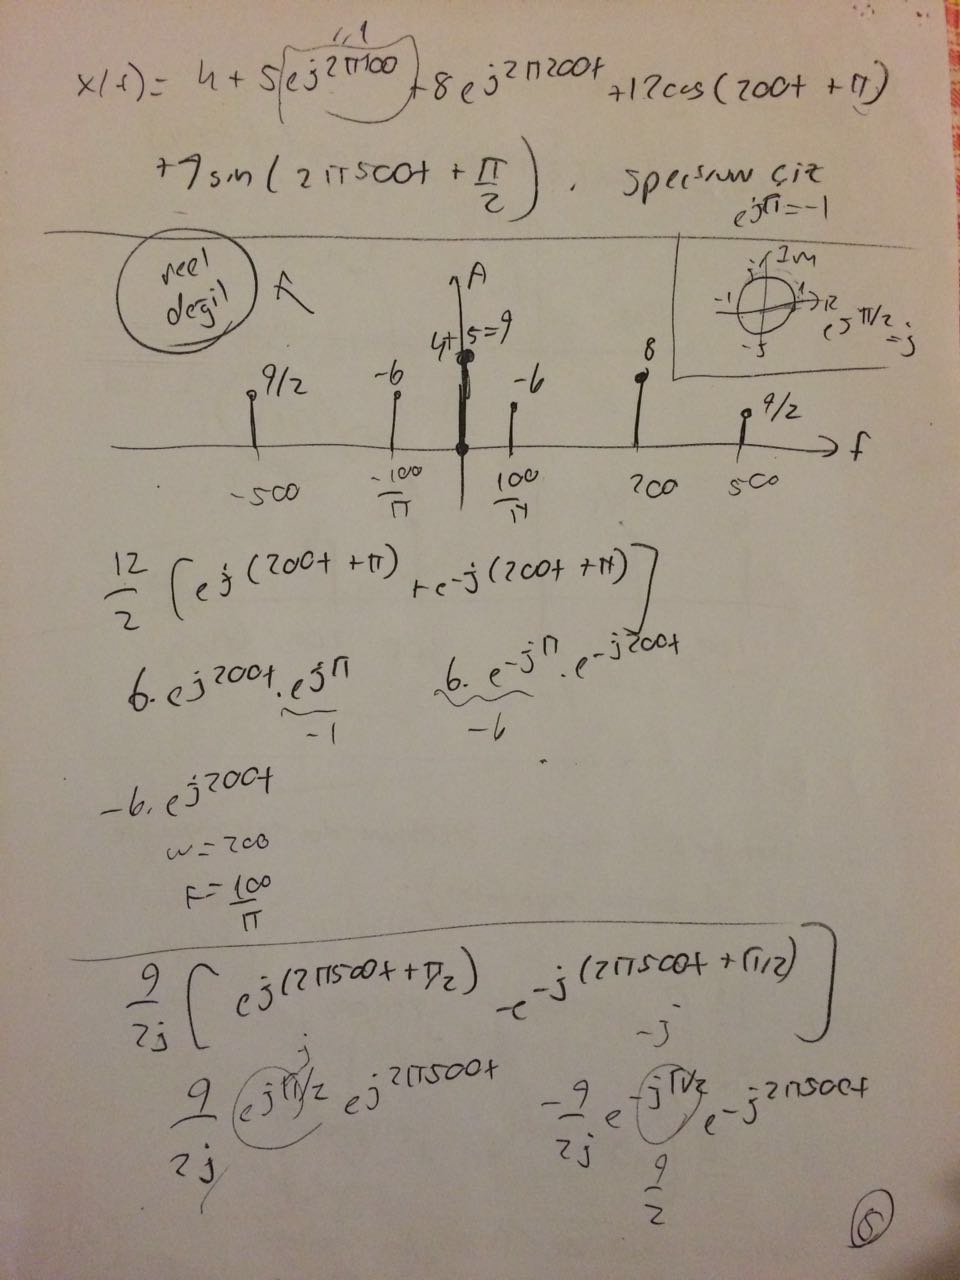 x(t) = 4 + 5(e^{j2π100}) + 8e^{j2π200t} + 12cos(200t + π)
1
+ 9 sin(2π500t + π/2). spectrum çiz
e^{jπ} = -1
reel
değil
A
4+5=9
9/2 -6 -6 8 9/2
-500 -100/π 100/π 200 500 f
j Im
-1 1 R
-j
e^{jπ/2} = j
12/2 [e^{j(200t + π)} + e^{-j(200t + π)}]
6. e^{j200t} . e^{jπ} 6. e^{-jπ} . e^{-j200t}
-1 -6
-6. e^{j200t}
w = 200
F = 100/π
9/2j [e^{j(2π500t + π/2)} - e^{-j(2π500t + π/2)}]
j -j
9/2j e^{jπ/2} e^{j2π500t} -9/2j e^{-jπ/2} e^{-j2π500t}
9/2
5